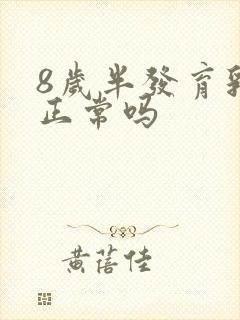 8歲半發育乳
正常吗
黄蓓佳